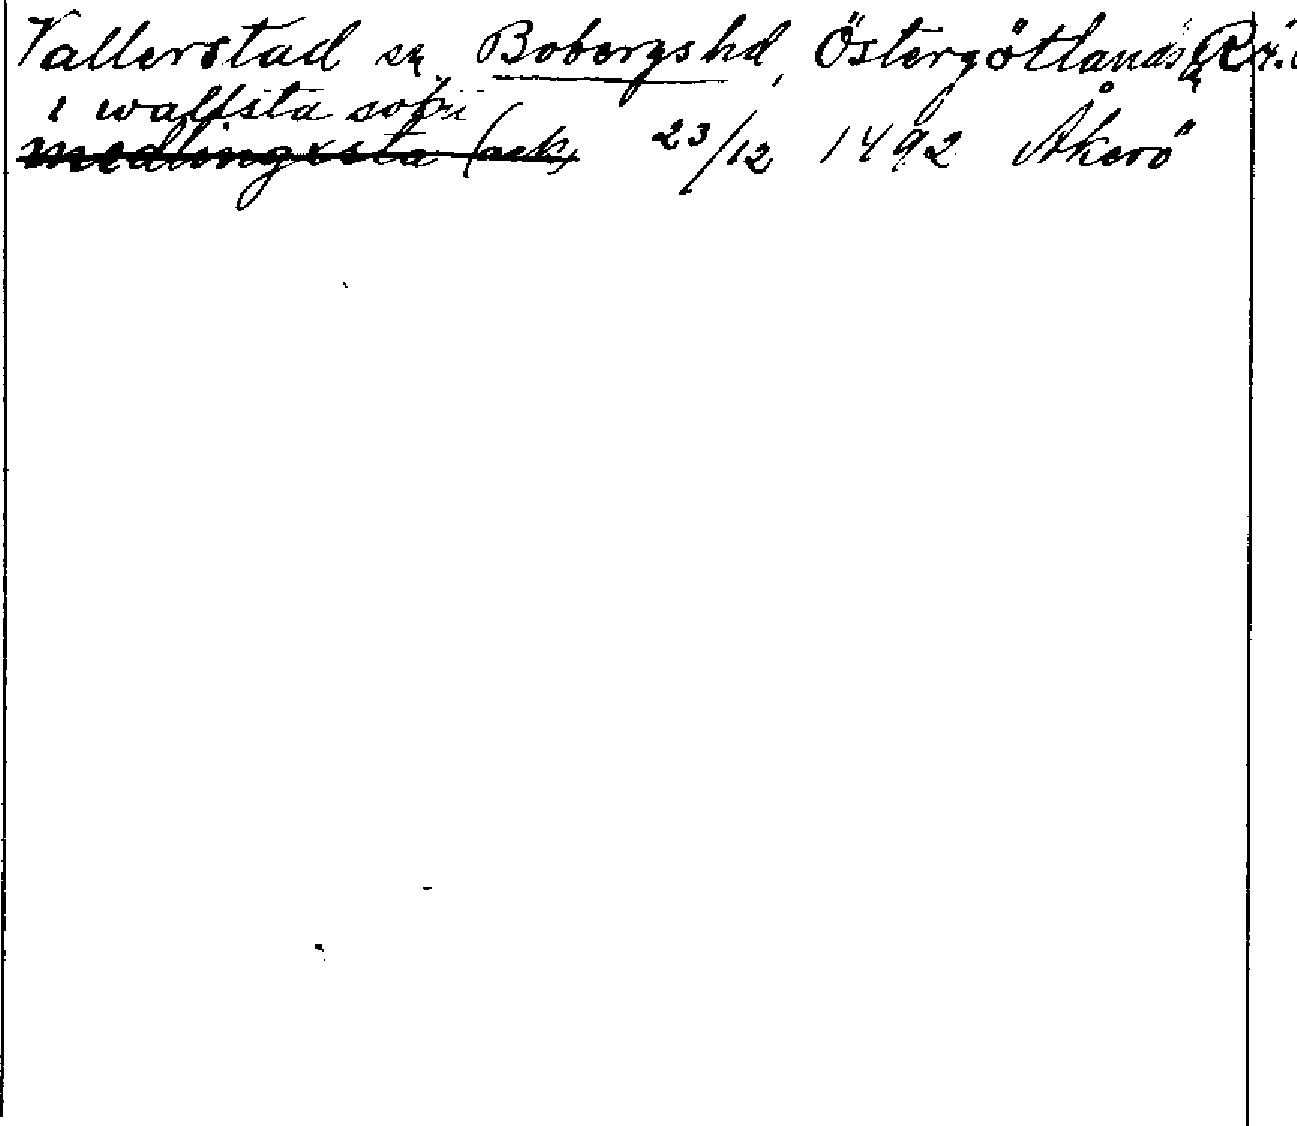 Vallerstad sn, Bobergshd, Östergötlands
i wallsta sokn
medlingxsta (ack) 23/12 1492 Åkerö